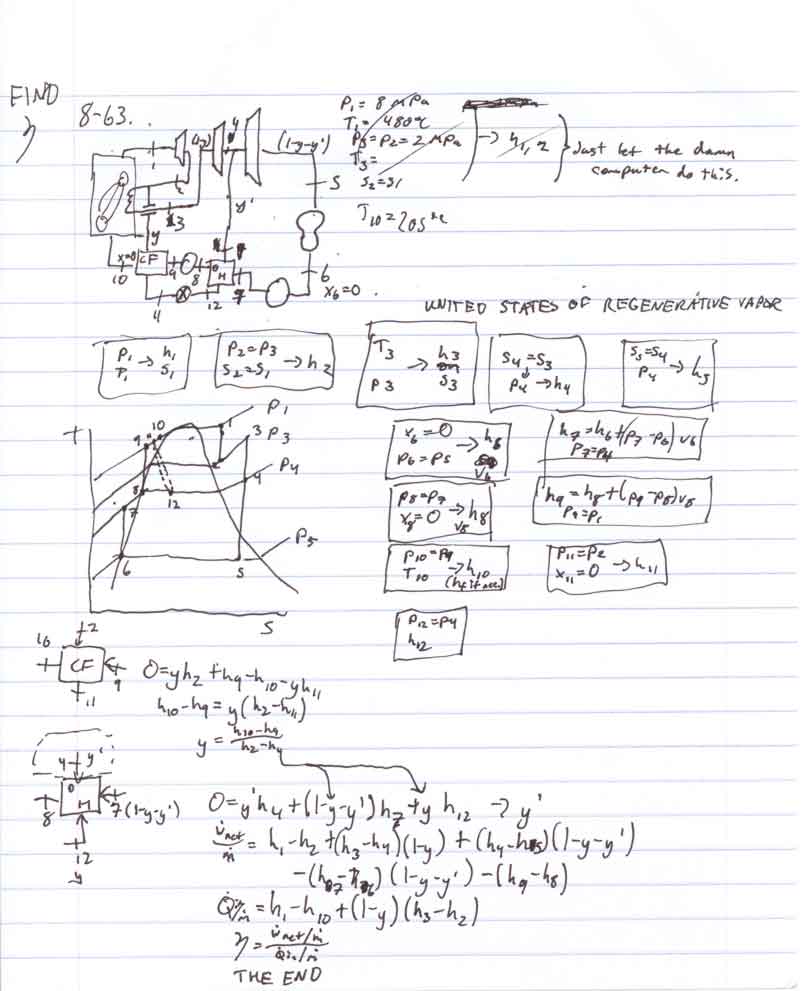 FIND
η
8-63.
P₁ = 8 MPa
T₁ = 480°C
P₃ = P₂ = 2 MPa
T₃ =
s₂ = s₁
→ h₁,₂
Just let the damn
computer do this.
T₁₀ = 205°C
(1-y-y')
4
5
y'
3
y
x=0
CF
10
9
8
OH
7
6
x₆=0
4
12
UNITED STATES OF REGENERATIVE VAPOR
P₁ → h₁
T₁ s₁
P₂ = P₃
s₂ = s₁ → h₂
T₃ → h₃
P₃ s₃
s₄ = s₃
P₄ → h₄
s₅ = s₄
P₄ → h₅
T
9 10 1 P₁
3 P₃
2
8 12 4 P₄
7
6 5 P₅
S
x₆ = 0 → h₆
P₆ = P₅ v₆
h₇ = h₆ + (P₇ - P₆) v₆
P₇ = P₄
P₈ = P₇
x₈ = 0 → h₈
v₈
h₉ = h₈ + (P₉ - P₈) v₈
P₉ = P₁
P₁₀ = P₉
T₁₀ → h₁₀
P₁₁ = P₂
x₁₁ = 0 → h₁₁
P₁₂ = P₄
h₁₂
2
10 CF 9
11
0 = yh₂ + h₉ - h₁₀ - yh₁₁
h₁₀ - h₉ = y(h₂ - h₁₁)
y = (h₁₀ - h₉)/(h₂ - h₄)
4 y'
8 OH 7 (1-y-y')
12
y
0 = y'h₄ + (1-y-y')h₇ + y h₁₂ → y'
Ẇnet/ṁ = h₁ - h₂ + (h₃ - h₄)(1-y) + (h₄ - h₅)(1-y-y')
- (h₇ - h₆)(1-y-y') - (h₉ - h₈)
Q̇in/ṁ = h₁ - h₁₀ + (1-y)(h₃ - h₂)
η = (Ẇnet/ṁ)/(Q̇in/ṁ)
THE END